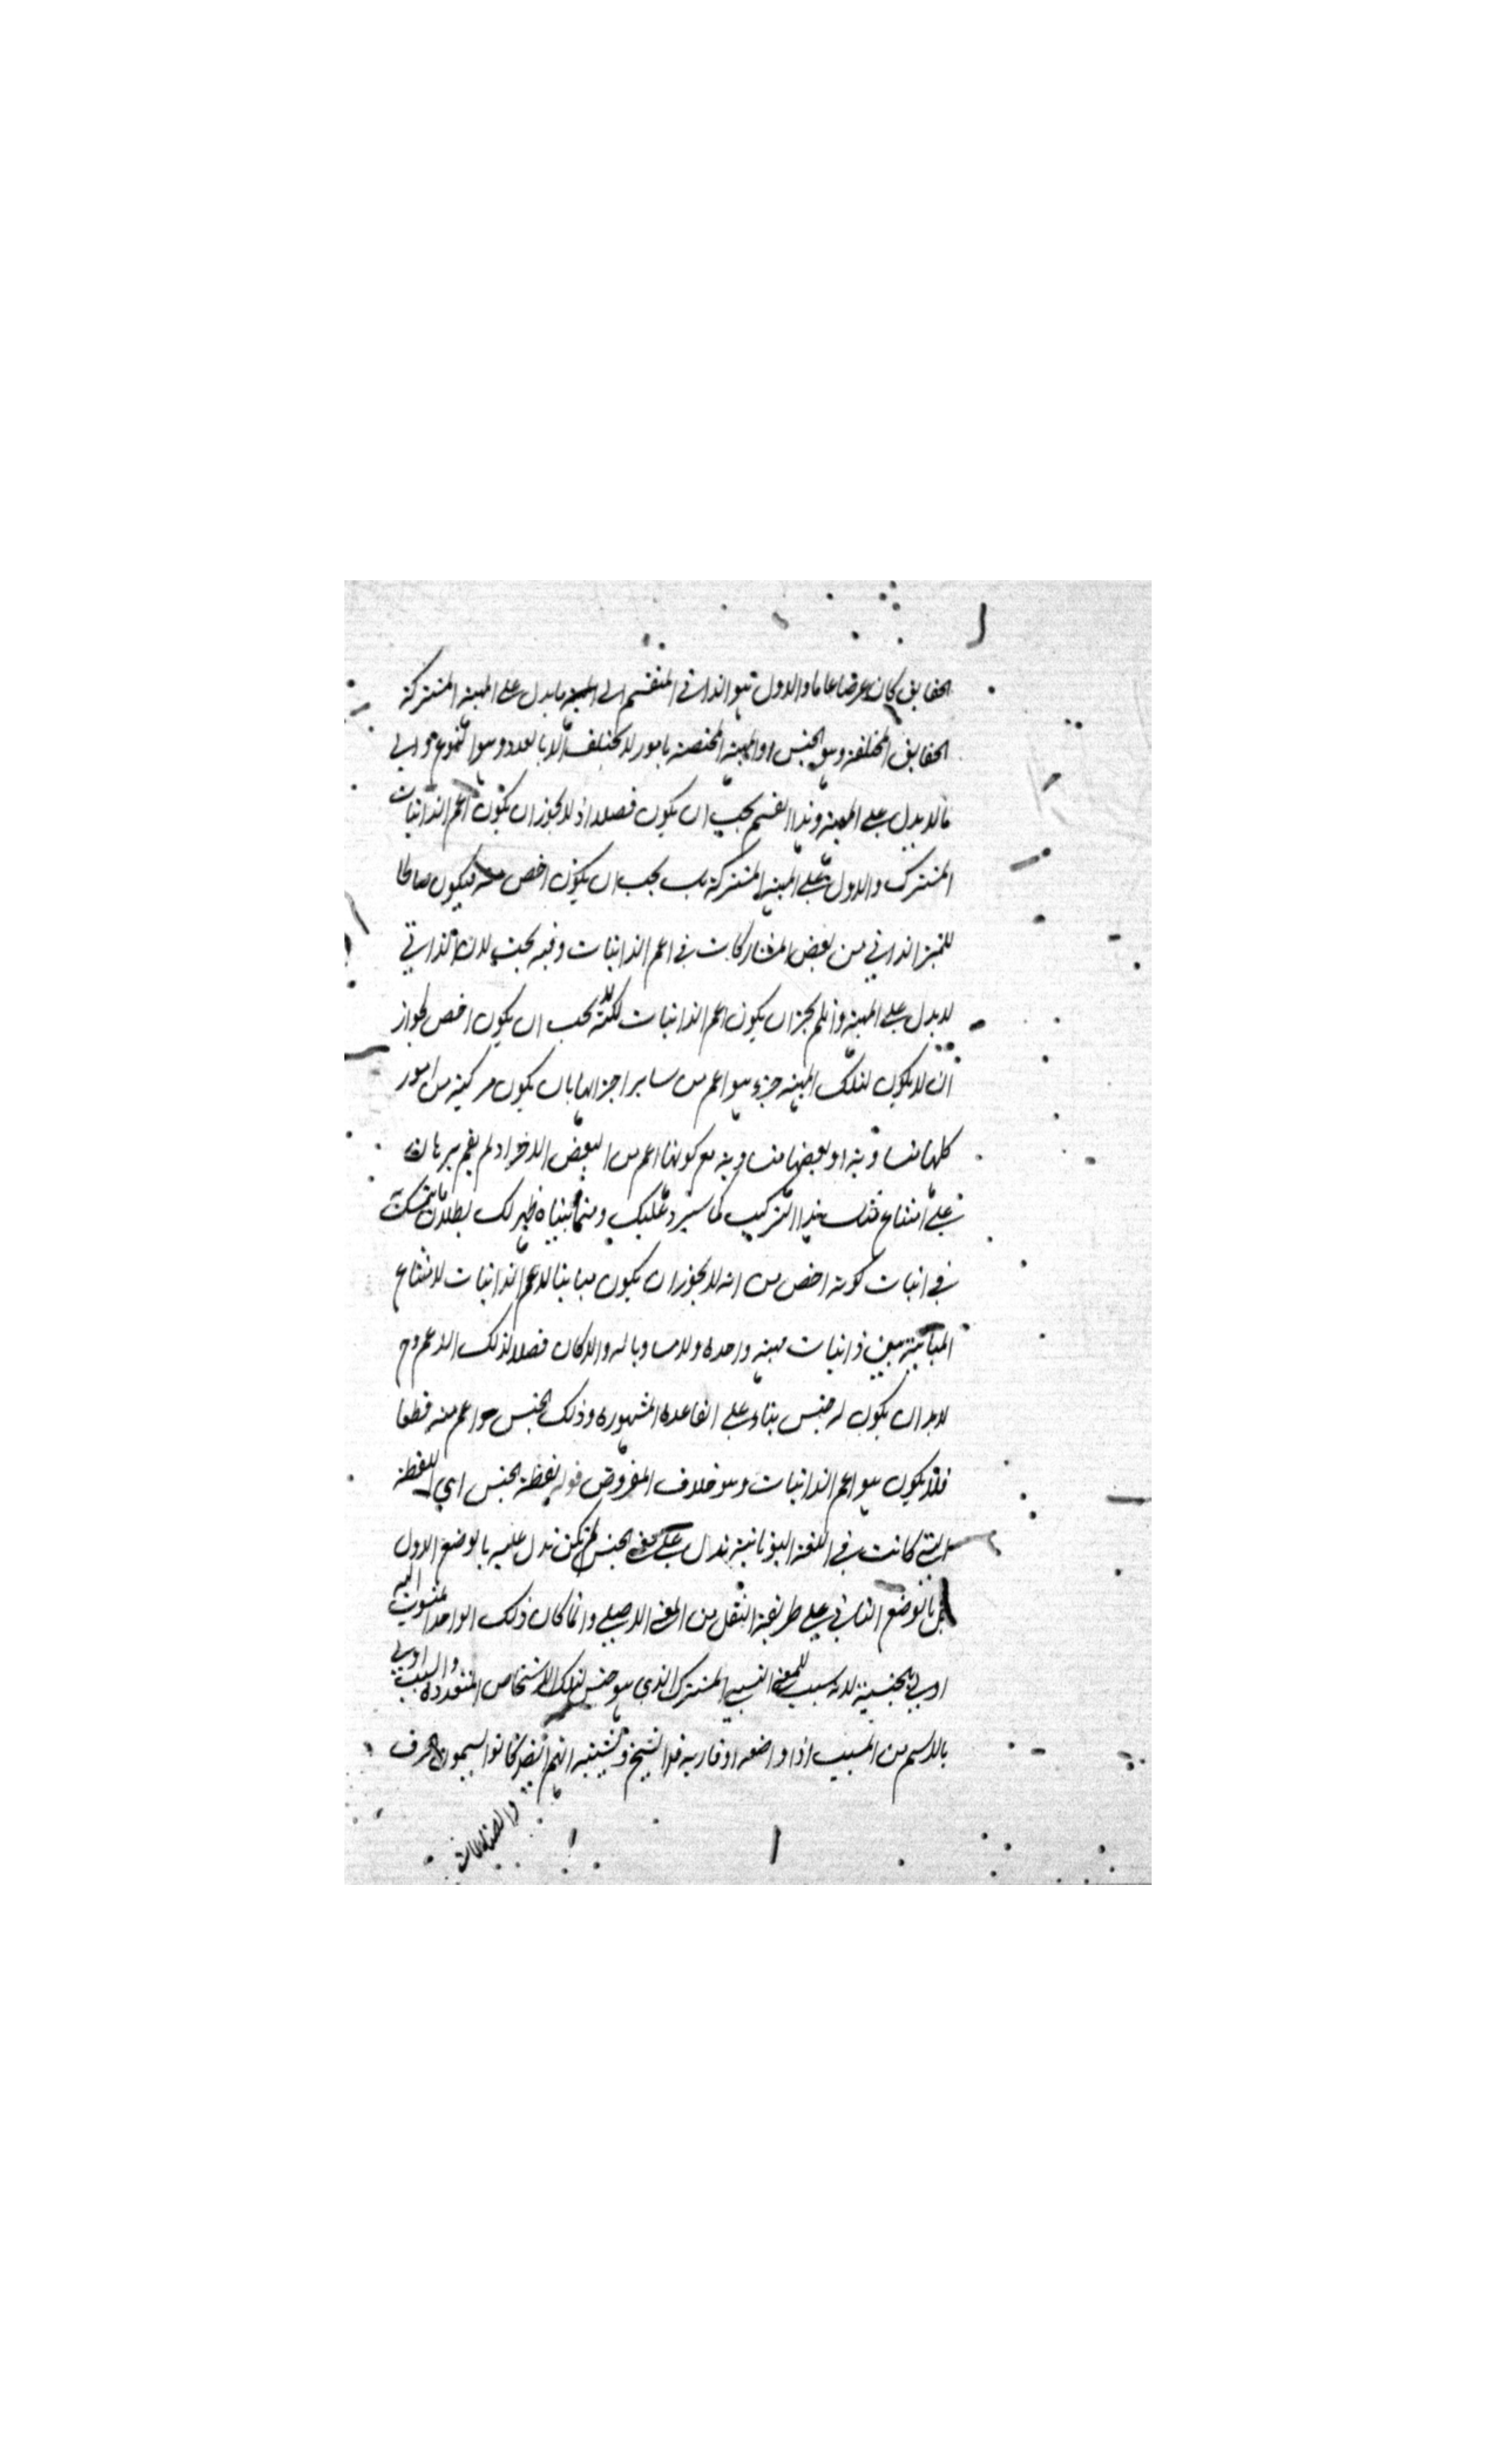 الحقايق كان عرضا عاما والاول هو الذاتى المنقسم الى ما يدل على المهية المشتركة
الحقايق المختلفة وهو الجنس او المهية المختصة بامور لا تختلف الا بالعدد وهو النوع والى
ما لا يدل على المهية وهذا القسم يجب ان يكون فصلا اذ لا يجوز ان يكون اعم الذاتيات
المشترك والا لدل على المهية المشتركة بل يجب ان يكون اخص منه فيكون صالحا
للتميز الذاتي من بعض المشاركات في اعم الذاتيات وفيه بحث لان الذاتي
لا يدل على المهية وان لم يجز ان يكون اعم الذاتيات لكنه لا يجب ان يكون اخص لجواز
ان لا يكون لتلك المهية جزء هو اعم من ساير اجزائها بان يكون مركبة من امور
كلها متساوية او بعضها متساوية مع كونها اعم من البعض الاخر اذ لم يقم برهان
على امتناع مثل هذا التركيب كما سيرد عليك ومما بيناه ظهر لك بطلان ما تمسك به
في اثبات كونه اخص من انه لا يجوز ان يكون مباينا لاعم الذاتيات لامتناع
المباينة بين ذاتيات مهية واحدة ولا مساويا له والا لكان فصلا لذلك الاعم وح
لا بد ان يكون له جنس بناء على القاعدة المشهورة وذلك الجنس اعم منه قطعا
فلا يكون هو اعم الذاتيات وهو خلاف المفروض قوله لفظة الجنس اي اللفظة
التي كانت في اللغة اليونانية تدل على معنى الجنس لم يكن تدل عليه بالوضع الاول
بل بالوضع الثاني على طريقة النقل من المعنى الاصلي وانما كان ذلك الواحد المنسوب اليه
اولى بالجنسية لانه سبب للمعنى النسبي المشترك الذي هو جنس لتلك الاشخاص المتعددة والسبب اولى
بالاسم من المسبب اذا واضعه او قاربه قال الشيخ ويشبه انهم ايضا كانوا يسمون الحرف
والصناعات